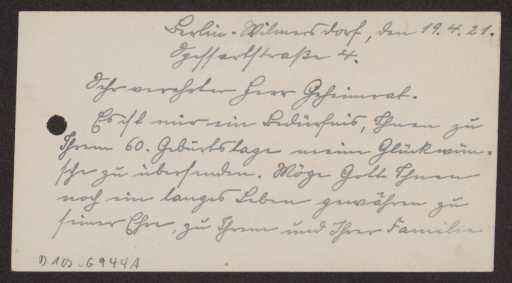 Berlin-Wilmersdorf, den 19.4.21.
Spessartstraße 4.
Sehr verehrter Herr Geheimrat.
Es ist mir ein Bedürfnis, Ihnen zu
Ihrem 60. Geburtstage meine Glückwün-
sche zu übersenden. Möge Gott Ihnen
noch ein langes Leben gewähren zu
seiner Ehre, zu Ihrem und Ihrer Familie
D 103-G944A